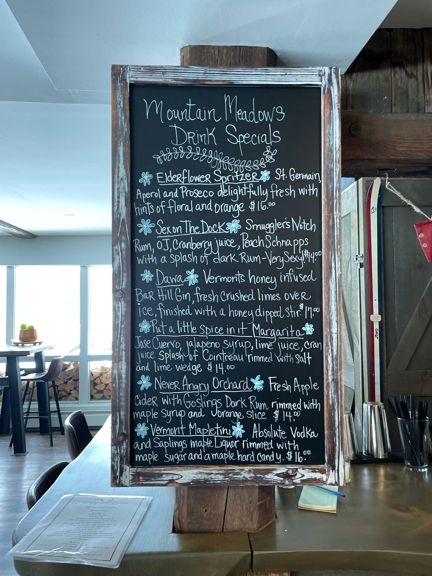 Mountain Meadows
Drink Specials
Elderflower Spritzer St Germain,
Aperol and Proseco delightfully fresh with
hints of floral and orange $16.00
Sex on The Dock Smuggler's Notch
Rum, OJ, Cranberry juice, Peach Schnapps
with a splash of dark Rum - Very Sexy $14.00
Dawa Vermont's honey infused
Bar Hill Gin, fresh crushed limes over
ice, finished with a honey dipped, stir $17.00
Put a little Spice in it Margarita
Jose Cuervo, jalapeno syrup, lime juice, cran
juice splash of Cointreau rimmed with salt
and lime wedge, $14.00
Never Angry Orchard Fresh Apple
Cider with Goslings Dark Rum, rimmed with
maple syrup and orange slice $14.00
Vermont Mapletini Absolute Vodka
and Saplings maple Liquor rimmed with
maple sugar and a maple hard candy. $16.00